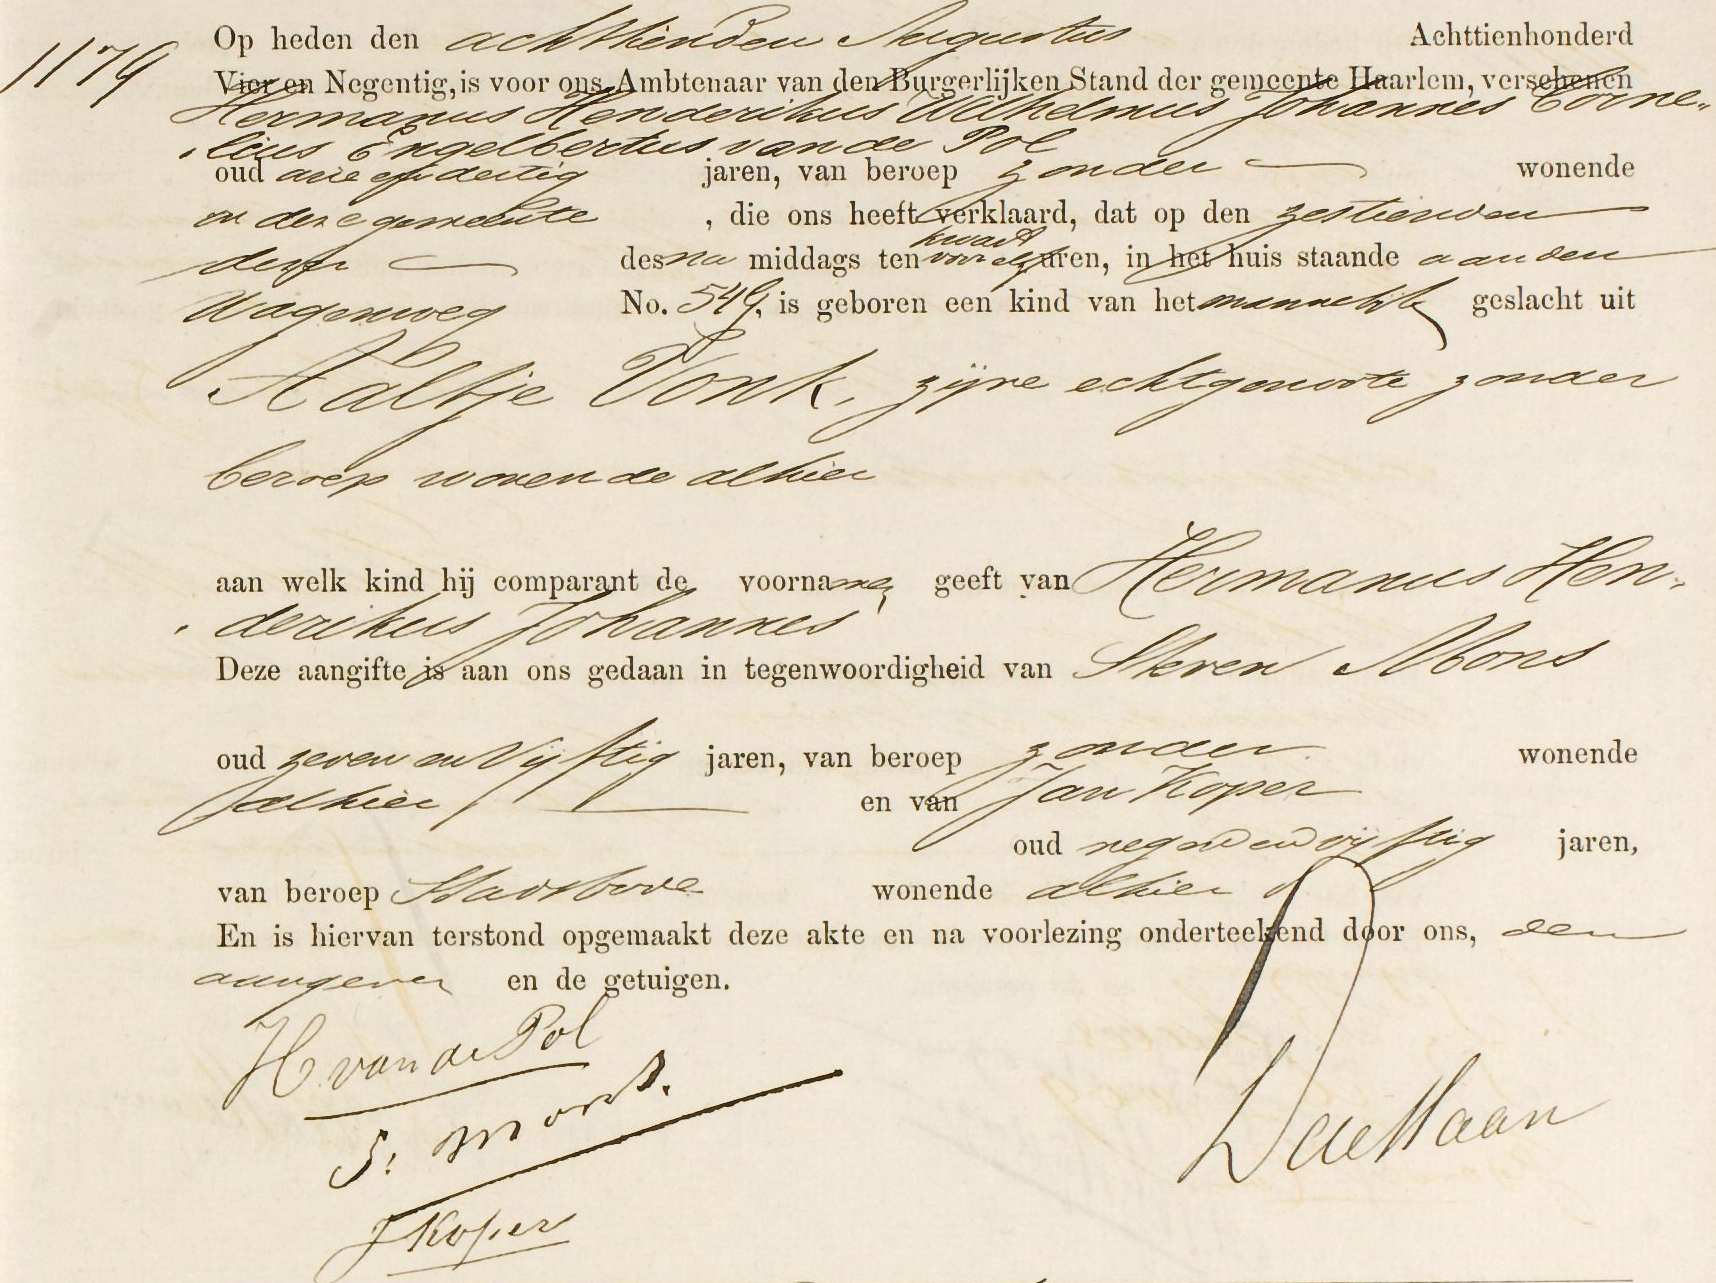 1179
Op heden den achttienden Augustus Achttienhonderd
Vier en Negentig, is voor ons Ambtenaar van den Burgerlijken Stand der gemeente Haarlem, verschenen
Hermanus Henderikus Wilhelmus Johannes Corne-
lius Engelbertus van de Pol
oud drie en dertig jaren, van beroep zonder wonende
in deze gemeente , die ons heeft verklaard, dat op den zestienden
dezer des na middags ten kwart
voor elf uren, in het huis staande aan den
Wagenweg No. 549, is geboren een kind van het mannelijk geslacht uit
Aaltje Vonk, zijne echtgenoote zonder
beroep wonende alhier
aan welk kind hij comparant de voornamen geeft van Hermanus Hen-
derikus Johannes
Deze aangifte is aan ons gedaan in tegenwoordigheid van Steven Mons
oud zeven en vijftig jaren, van beroep zonder wonende
alhier en van Jan Koper
oud negen en vijftig jaren,
van beroep Stadsbode wonende alhier
En is hiervan terstond opgemaakt deze akte en na voorlezing onderteekend door ons, den
aangever en de getuigen.
H van de Pol
S. Mons.
J Koper